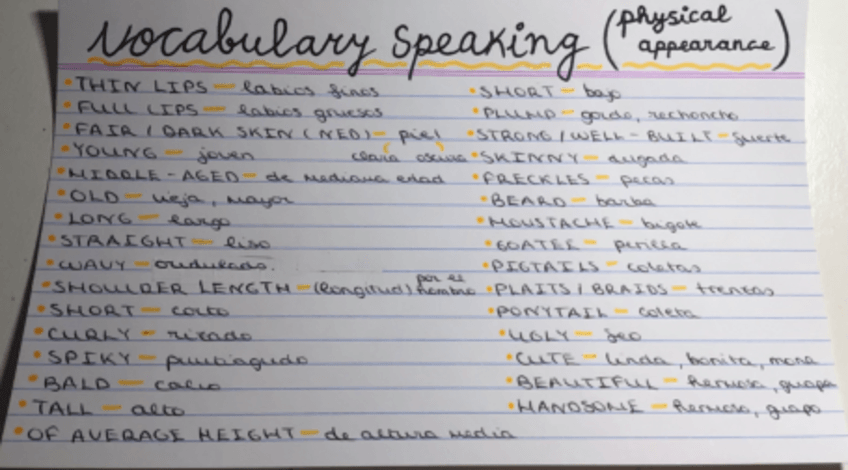 Vocabulary Speaking (physical appearance)
• THIN LIPS — labios finos
• FULL LIPS — labios gruesos
• FAIR / DARK SKIN (NED) — piel clara oscura
• YOUNG — joven
• MIDDLE-AGED — de mediana edad
• OLD — vieja, mayor
• LONG — largo
• STRAIGHT — liso
• WAVY — ondulado.
• SHOULDER LENGTH — (longitud) por el hombro
• SHORT — corto
• CURLY — rizado
• SPIKY — puntiagudo
• BALD — calvo
• TALL — alto
• OF AVERAGE HEIGHT — de altura media
• SHORT — bajo
• PLUMP — gordo, rechoncho
• STRONG / WELL-BUILT — fuerte
• SKINNY — delgada
• FRECKLES — pecas
• BEARD — barba
• MOUSTACHE — bigote
• GOATEE — perilla
• PIGTAILS — coletas
• PLAITS / BRAIDS — trenzas
• PONYTAIL — coleta
• UGLY — feo
• CUTE — linda, bonita, mona
• BEAUTIFUL — hermosa, guapa
• HANDSOME — hermoso, guapo